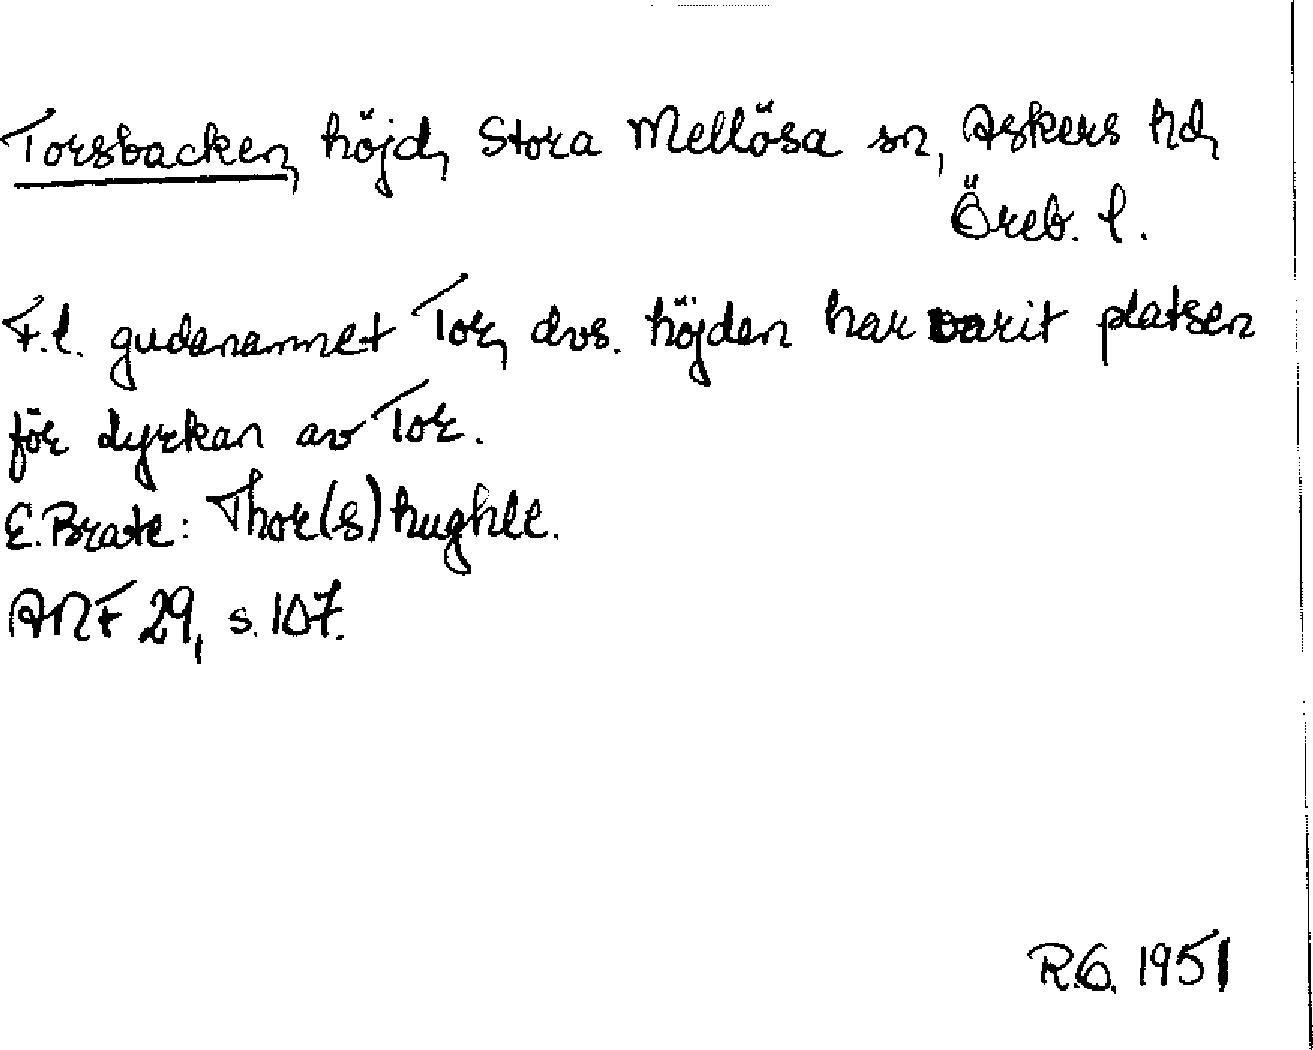 Torsbacken, höjd, Stora Mellösa sn, Askers hd,
Öreb. l.
F.l. gudanamnet Tor, dvs. höjden har varit platsen
för dyrkan av Tor.
E. Brate: Thor(s)hughle.
ANF 29, s. 107.
R.G. 1951